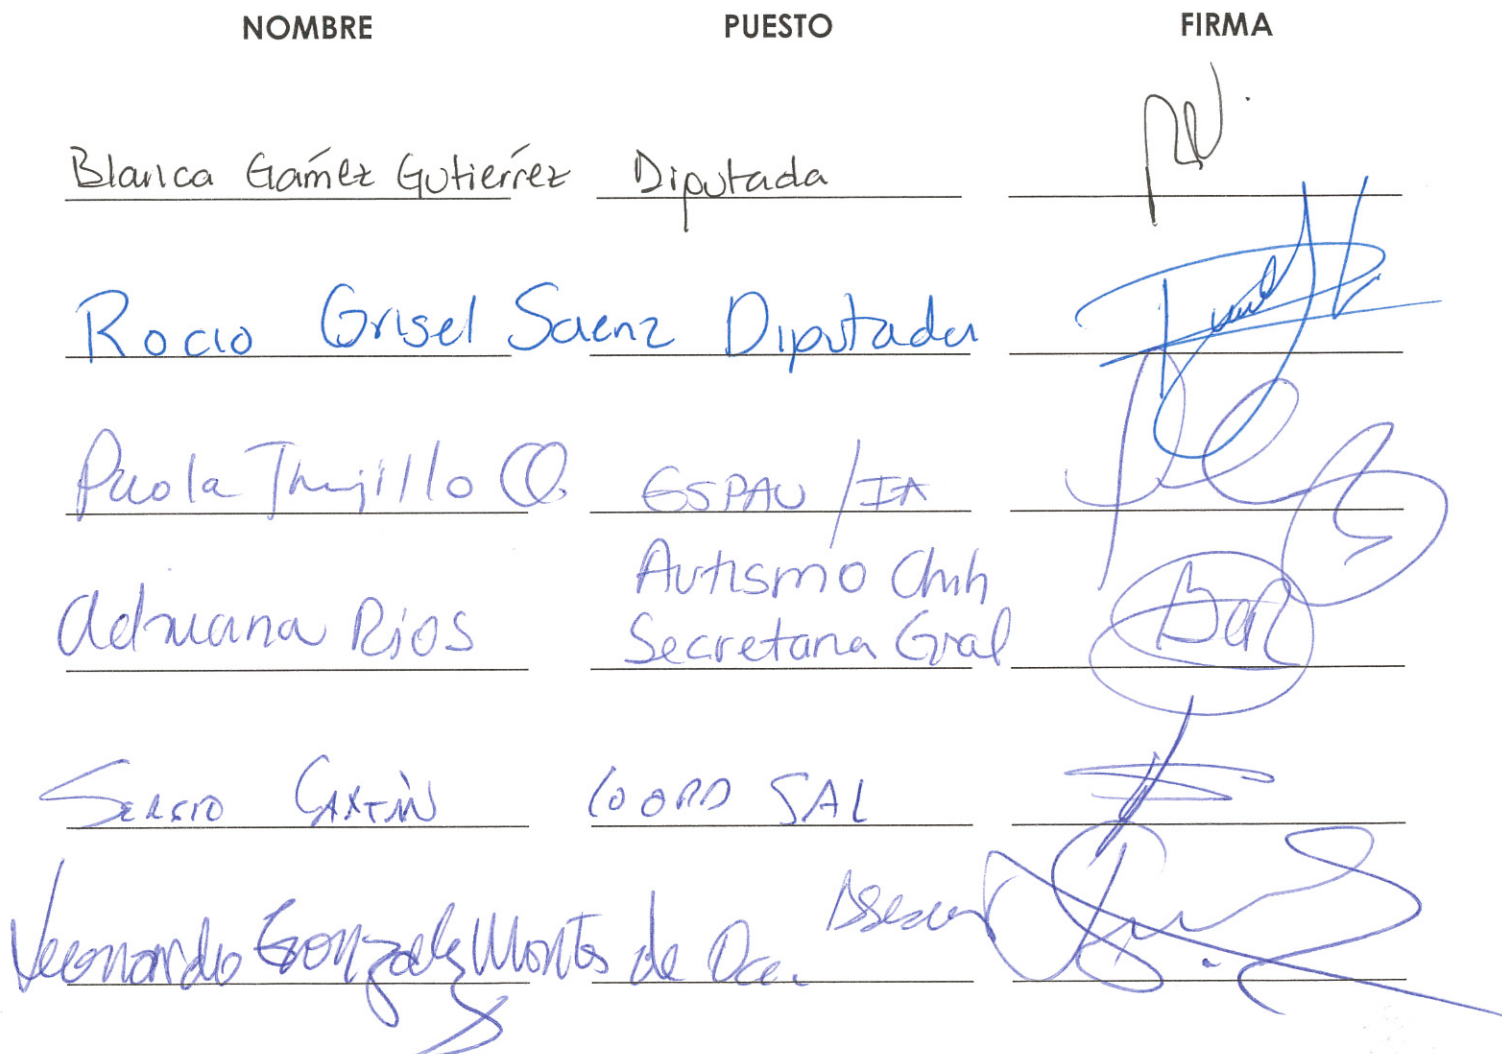 NOMBRE PUESTO FIRMA
Blanca Gaméz Gutierréz Diputada
Rocio Grisel Saenz Diputada
Paola Trujillo O. ESPAU / IA
Autismo Chih
Adriana Ríos Secretaria Gral
Sergio COORD SAL
Leonardo Gonzalez Montes de Oca. Asesor